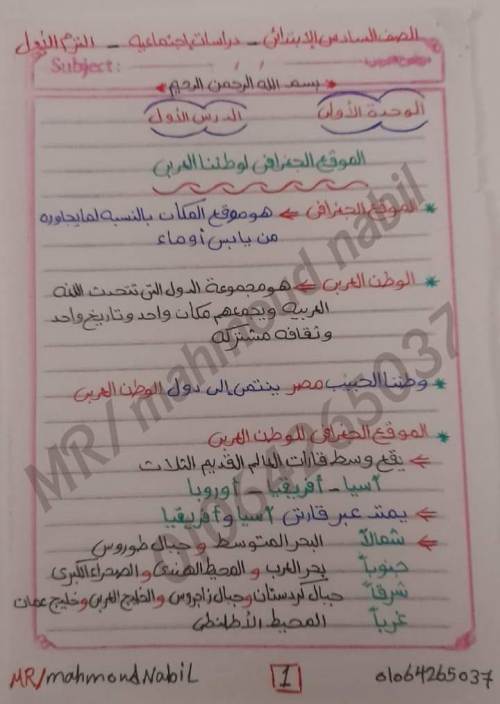 الصف السادس الإبتدائى - دراسات إجتماعية - الترم الأول
Subject:
بسم الله الرحمن الرحيم
الوحدة الأولى الدرس الأول
الموقع الجغرافى لوطننا العربى
* الموقع الجغرافى ← هو موقع المكان بالنسبة لما يجاوره
من يابس أو ماء
* الوطن العربى ← هو مجموعة الدول التى تتحدث اللغه
العربية ويجمعهم مكان واحد وتاريخ واحد
وثقافه مشتركه
* وطننا الحبيب مصر ينتمى إلى دول الوطن العربى
* الموقع الجغرافى للوطن العربى
← يقع وسط قارات العالم القديم الثلاث
آسيا - أفريقيا - أوروبا
← يمتد عبر قارتى آسيا وأفريقيا
← شمالاً البحر المتوسط و جبال طوروس
جنوباً بحر العرب و المحيط الهندى و الصحراء الكبرى
شرقاً جبال كردستان و جبال زاجروس و الخليج العربى و خليج عمان
غرباً المحيط الأطلنطى
MR/mahmoud Nabil 1 01064265037
MR/ mahmoud nabil
01064265037